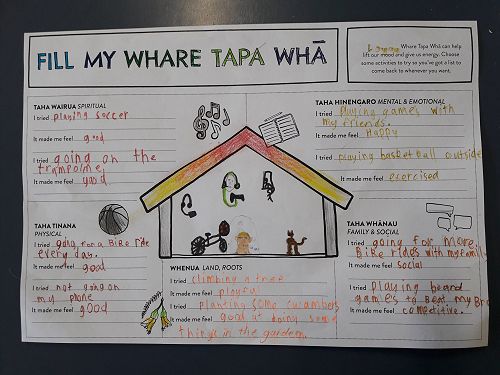 FILL MY WHARE TAPA WHĀ
Whare Tapa Whā can help
lift our mood and give us energy. Choose
some activities to try so you've got a list to
come back to whenever you want.
TAHA WAIRUA SPIRITUAL
I tried playing soccer
It made me feel good
I tried going on the
trampolme
It made me feel good
TAHA HINENGARO MENTAL & EMOTIONAL
I tried playing games with
my friends.
It made me feel Happy
I tried playing basketball outside
It made me feel exorcised
TAHA TINANA
PHYSICAL
I tried going for a BiKe ride
every day.
It made me feel good
I tried not going on
my phone
It made me feel good
WHENUA LAND, ROOTS
I tried climbing a tree
It made me feel playful
I tried planting some cucumbers
It made me feel good at doing some
things in the garden.
TAHA WHĀNAU
FAMILY & SOCIAL
I tried going for more
Bike rides with my family
It made me feel social
I tried playing board
games to beat my Bro
It made me feel competitive.